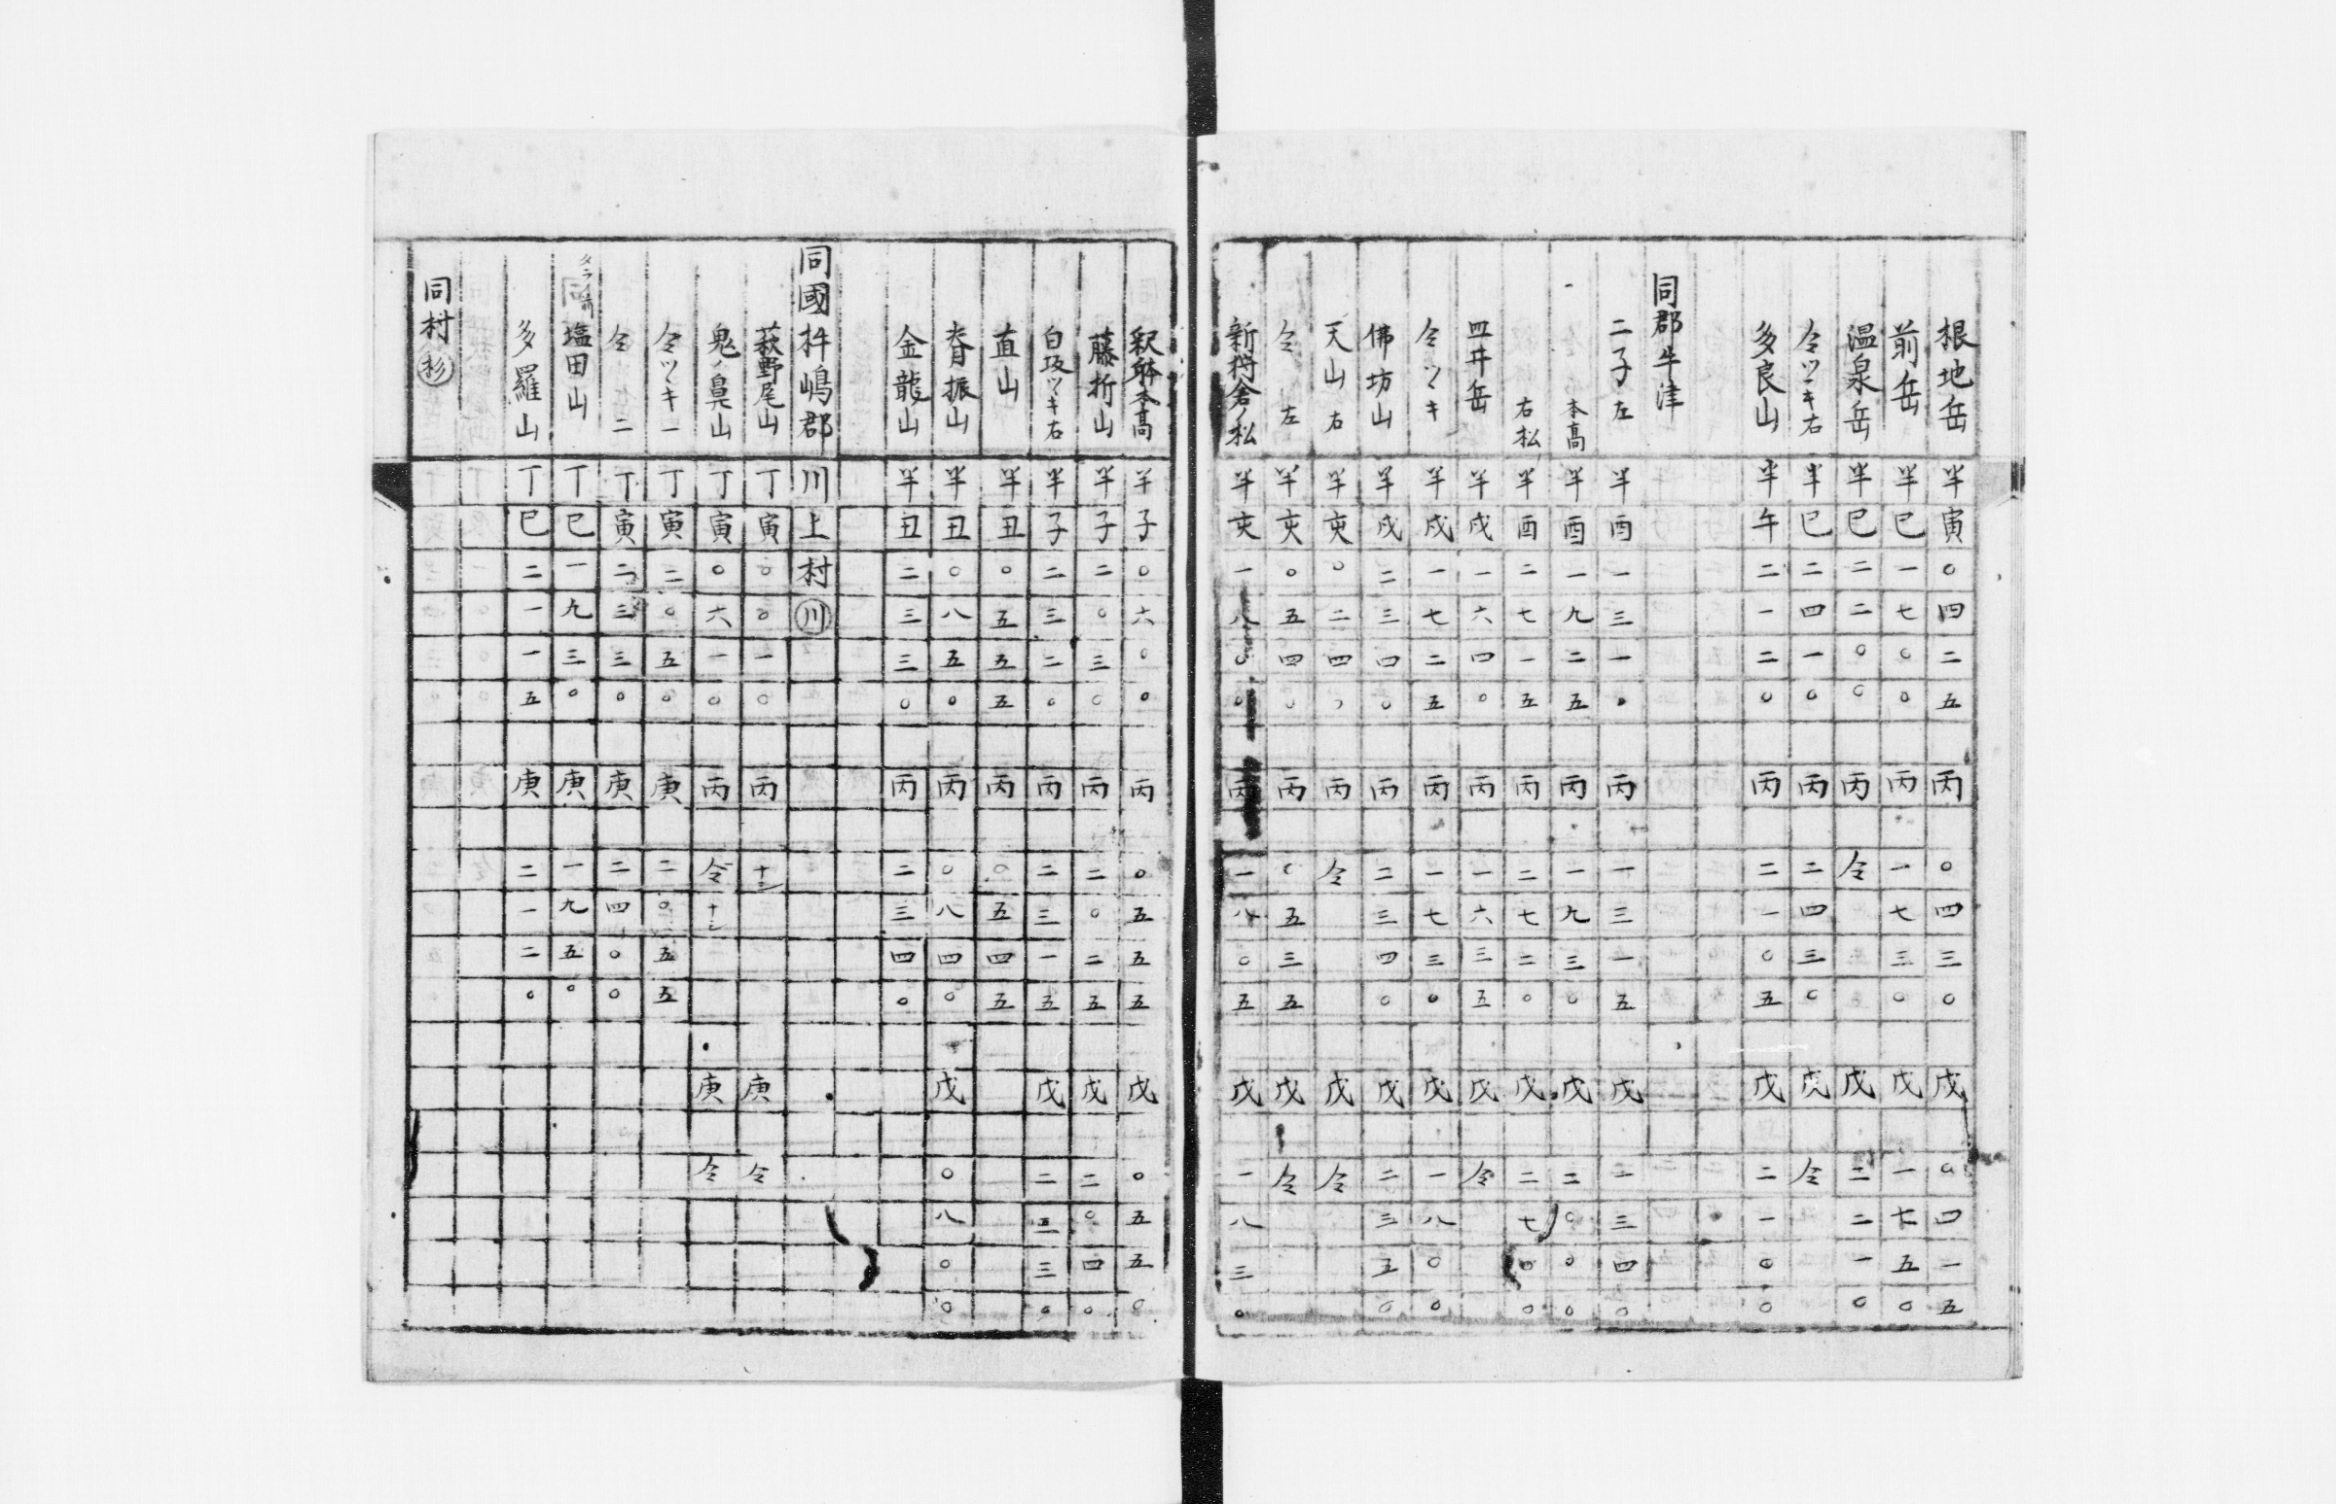 根地岳 半寅〇四二五 丙 〇四三〇 戊 〇四一五
前岳 半巳一七〇〇 丙 一七三〇 戊 一七五〇
温泉岳 半巳二二〇〇 丙 仝 戊 二二一〇
仝ツヾキ右 半巳二四一〇 丙 二四三〇 戊 仝
多良山 半午二一二〇 丙 二一〇五 戊 二一〇〇
同郡牛津
二子左 半酉一三一〇 丙 一三一五 戊 一三四〇
本高 半酉一九二五 丙 一九三〇 戊 二〇〇〇
右松 半酉二七一五 丙 二七二〇 戊 二七四〇
皿井岳 半戌一六四〇 丙 一六三五 戊 仝
仝ツヾキ 半戌一七二五 丙 一七三〇 戊 一八〇〇
佛坊山 半戌二三四〇 丙 二三四〇 戊 二三五〇
天山右 半亥〇二四〇 丙 仝 戊 仝
仝左 半亥〇五四〇 丙 〇五三五 戊 仝
新狩倉ノ松 半亥一八〇〇 丙 一八〇五 戊 一八三〇
釈躰本高 半子〇六〇〇 丙 〇五五五 戊 〇五五〇
藤折山 半子二〇三〇 丙 二〇二五 戊 二〇四〇
白坂ツヾキ右 半子二三二〇 丙 二三一五 戊 二三三〇
直山 半丑〇五五五 丙 〇五四五
脊振山 半丑〇八五〇 丙 〇八四〇 戊 〇八〇〇
金龍山 半丑二三三〇 丙 二三四〇
同國杵嶋郡川上村㊥川
萩野尾山 丁寅〇〇一〇 丙 十シ 庚 仝
鬼ノ鼻山 丁寅〇六一〇 丙 仝十シ 庚 仝
仝ツヾキ一 丁寅二〇五〇 庚 二〇五五
仝 二 丁寅二三三〇 庚 二四〇〇
塩田山 丁巳一九三〇 庚 一九五〇
多羅山 丁巳二一一五 庚 二一二〇
同村 杉